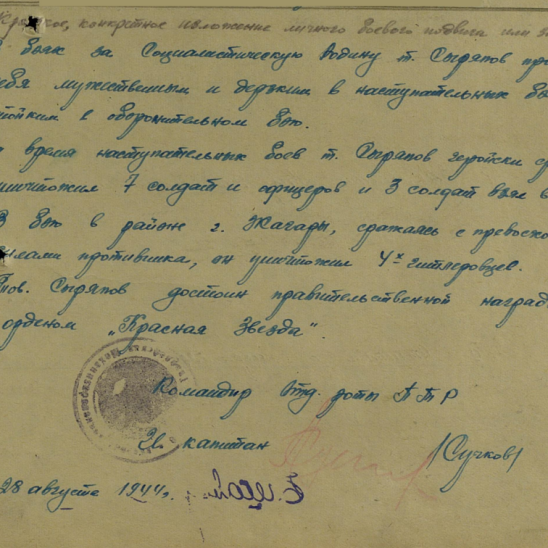 Краткое, конкретное изложение личного боевого подвига или за
В боях за Социалистическую Родину т. Сыряпов про
себя мужественным и дерзким в наступательных бо
стойким в оборонительном бою.
время наступательных боев т. Сыряпов геройски ср
уничтожил 7 солдат и офицеров и 3 солдат взял в
В бою в район г. Жагады, сражаясь с превосхо
силами противника, он уничтожил 4х гитлеровцев.
Тов. Сыряпов достоин правительственной наград
орденом „Красная Звезда"
Командир Отд. роты ПТР
капитан /Сучков/
28 августа 1944г.